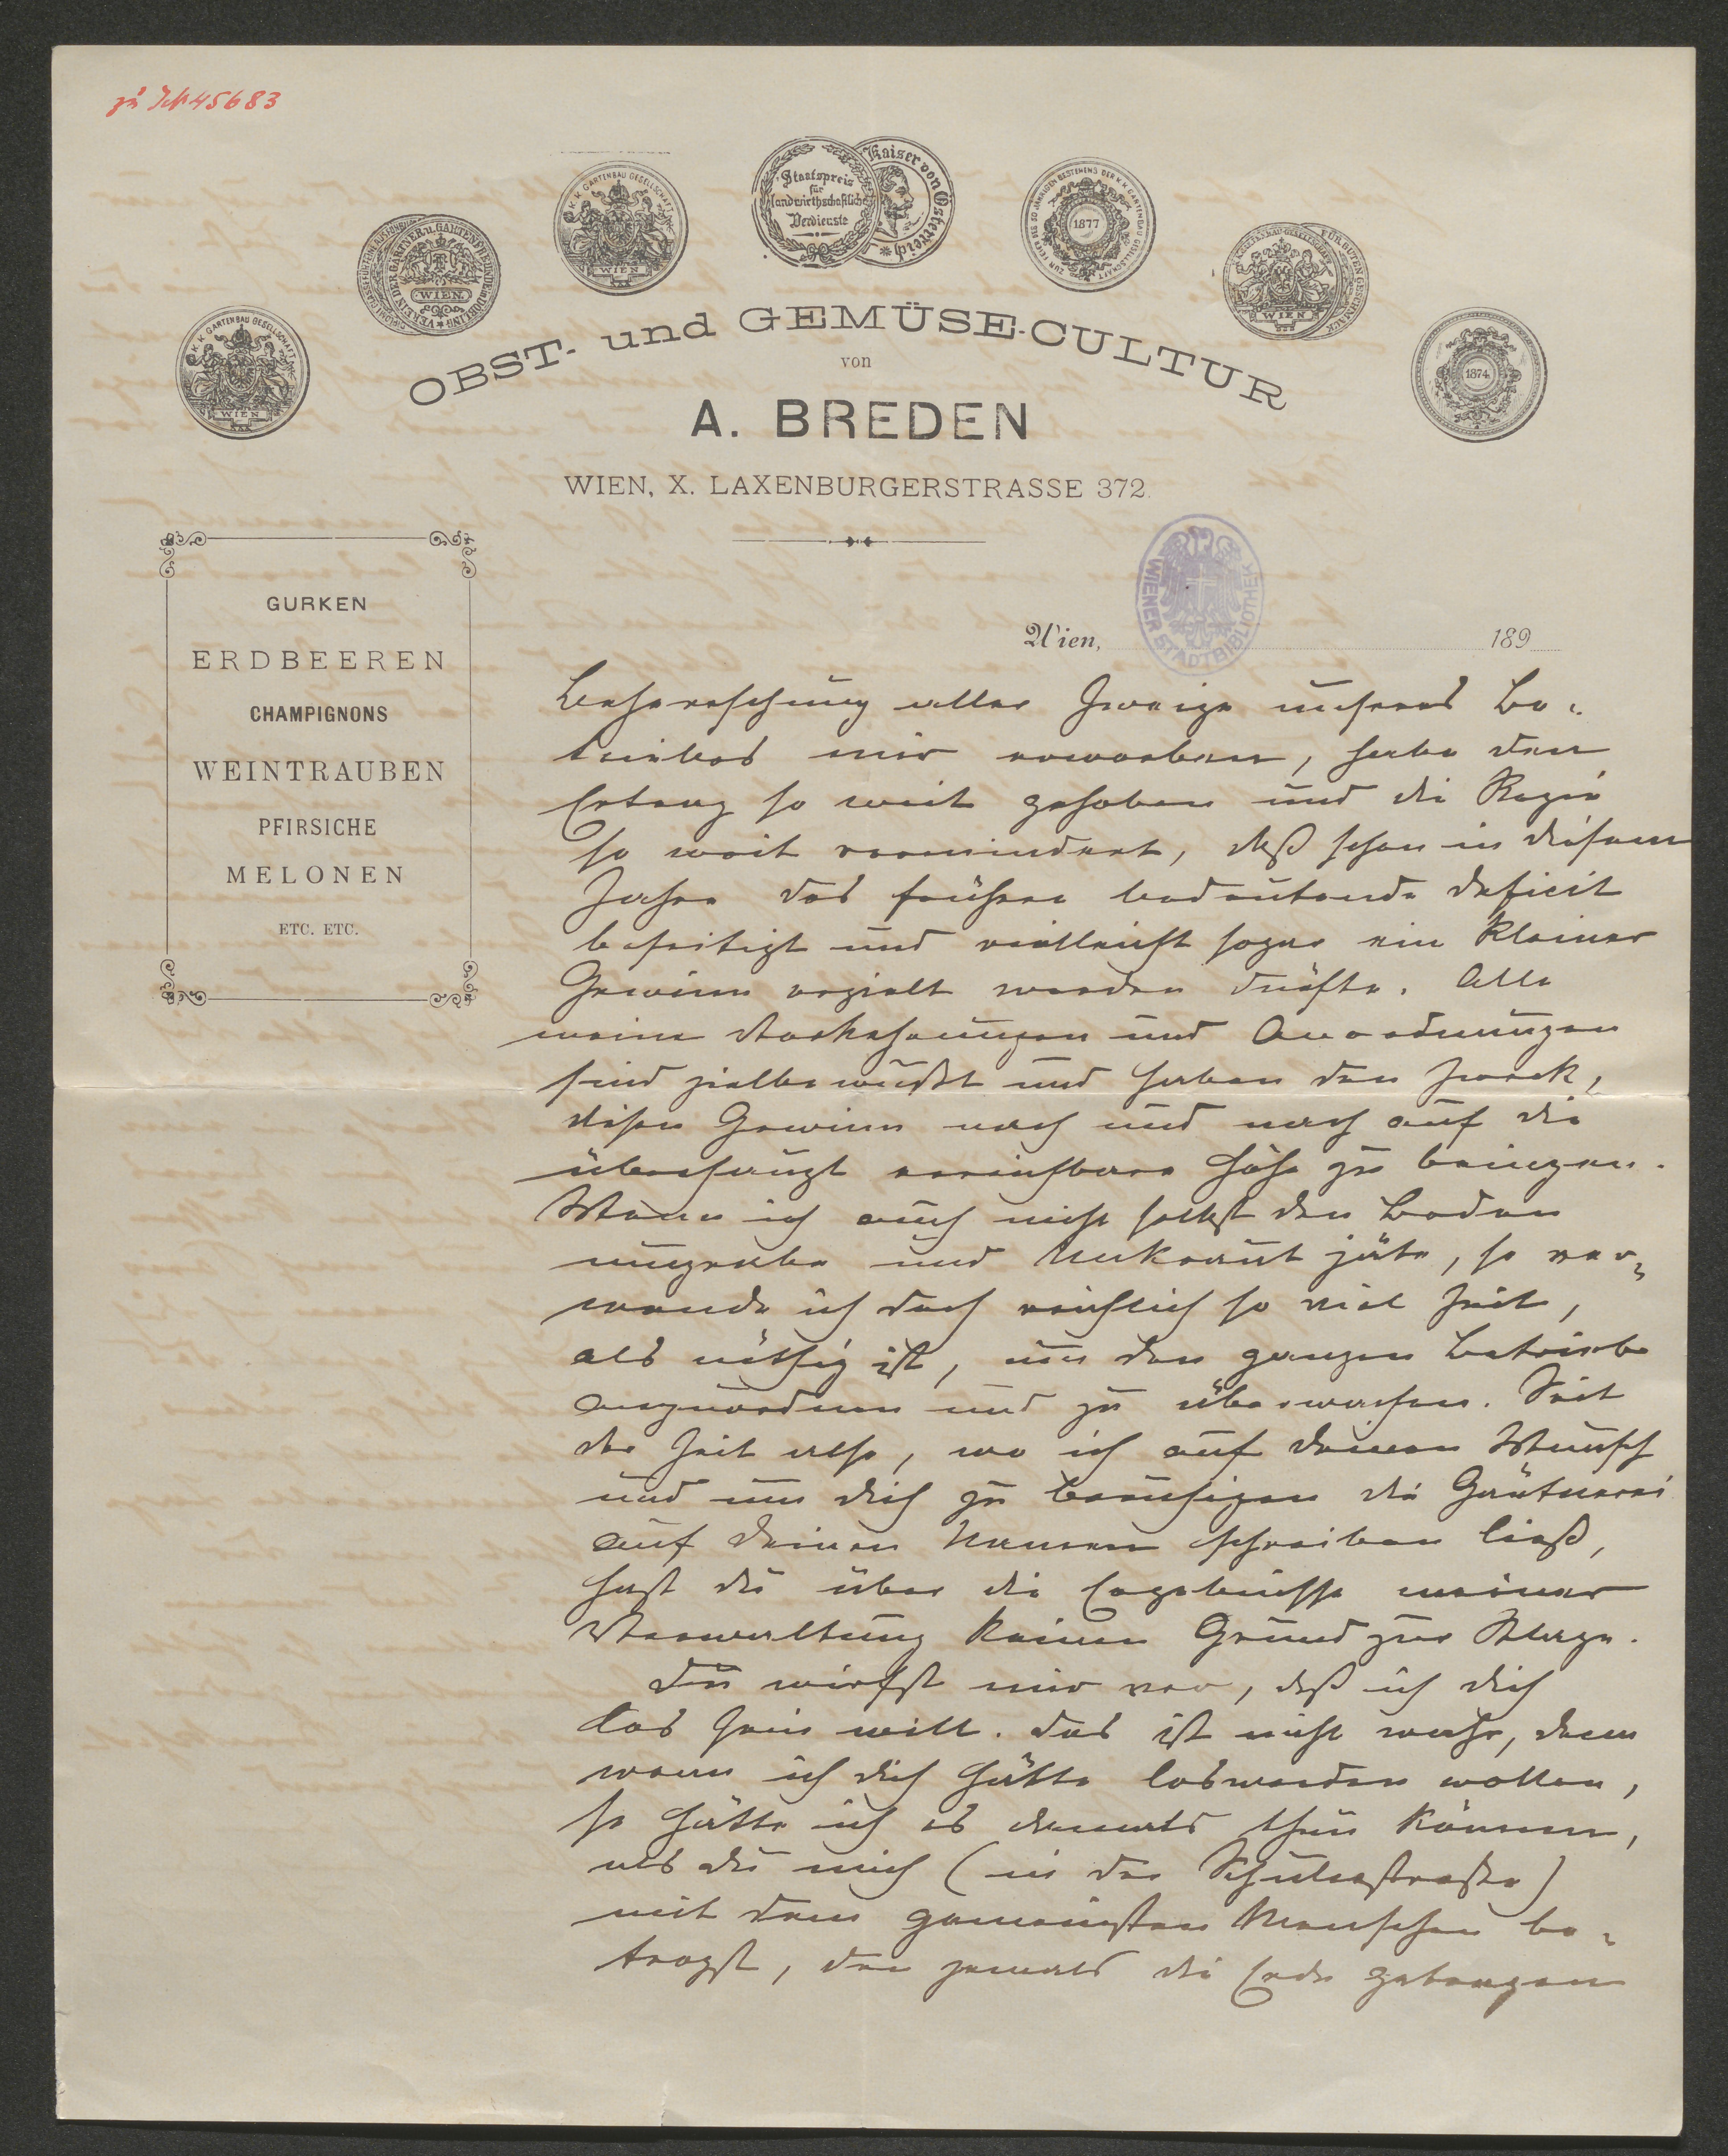 zu JN 45683
K. K. GARTENBAU GESELLSCHAFT
WIEN
VEREIN DER GÄRTNER u. GARTENFREUNDE in DÖBLING
WIEN
K. K. GARTENBAU GESELLSCHAFT
WIEN
Staatspreis
für
landwirthschaftliche
Verdienste
Kaiser von Österreich
ZUR FEIER DES 50 JÄHRIGEN BESTEHENS DER K. K. GARTENBAU GESELLSCHAFT
1877
K. K. GARTENBAU-GESELLSCHAFT
WIEN
FÜR GUTEN GESCHMACK
1874
OBST- und GEMÜSE-CULTUR
von
A. BREDEN
WIEN, X. LAXENBURGERSTRASSE 372.
GURKEN
ERDBEEREN
CHAMPIGNONS
WEINTRAUBEN
PFIRSICHE
MELONEN
ETC. ETC.
WIENER STADTBIBLIOTHEK
Wien, 189
Beherrschung aller Zweige unseres Be-
triebes mir erworben, habe den
Ertrag so weit gehoben und die Regie
so weit vermindert, daß schon in diesem
Jahre das frühere bedeutende Deficit
beseitigt und vielleicht sogar ein kleiner
Gewinn erzielt werden dürfte. Alle
meine Vorkehrungen und Anordnungen
sind zielbewußt und haben den Zweck,
diesen Gewinn nach und nach auf die
überhaupt erreichbare Höhe zu bringen.
Wenn ich auch nicht selbst den Boden
umgrabe und Unkraut jäte, so ver-
wende ich doch reichlich so viel Zeit,
als nöthig ist, um den ganzen Betrieb
anzuordnen und zu überwachen. Seit
der Zeit also, wo ich auf deinen Wunsch
und um dich zu beruhigen die Gärtnerei
auf deinen Namen schreiben ließ,
hast du über die Ergebnisse meiner
Verwaltung keinen Grund zur Klage.
Du wirfst mir vor, daß ich dich
los sein will. Das ist nicht wahr, denn
wenn ich dich hätte loswerden wollen,
so hätte ich es damals thun können,
als du mich (in der Schulerstraße)
mit dem gemeinsten Menschen be-
trogst, den jemals die Erde getragen